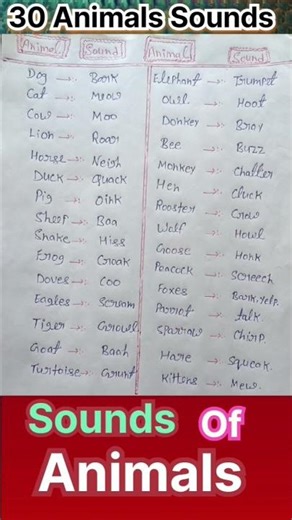 30 Animals Sounds
Animal Sound
Dog → Bark
Cat → Meow
Cow → Moo
Lion → Roar
Horse → Neigh
Duck → Quack
Pig → Oink
Sheep → Baa
Snake → Hiss
Frog → Croak
Doves → Coo
Eagles → Scream
Tiger → Growl
Goat → Baah
Turtoise → Grunt
Animal Sound
Elephant → Trumpet
Owl → Hoot
Donkey → Bray
Bee → Buzz
Monkey → Chatter
Hen → Cluck
Rooster → Crow
Wolf → Howl
Goose → Honk
Peacock → Screech
Foxes → Bark, Yelp.
Parrot → talk.
Sparrow → Chirp.
Hare → Squeak.
Kittens → Mew.
Sounds Of
Animals